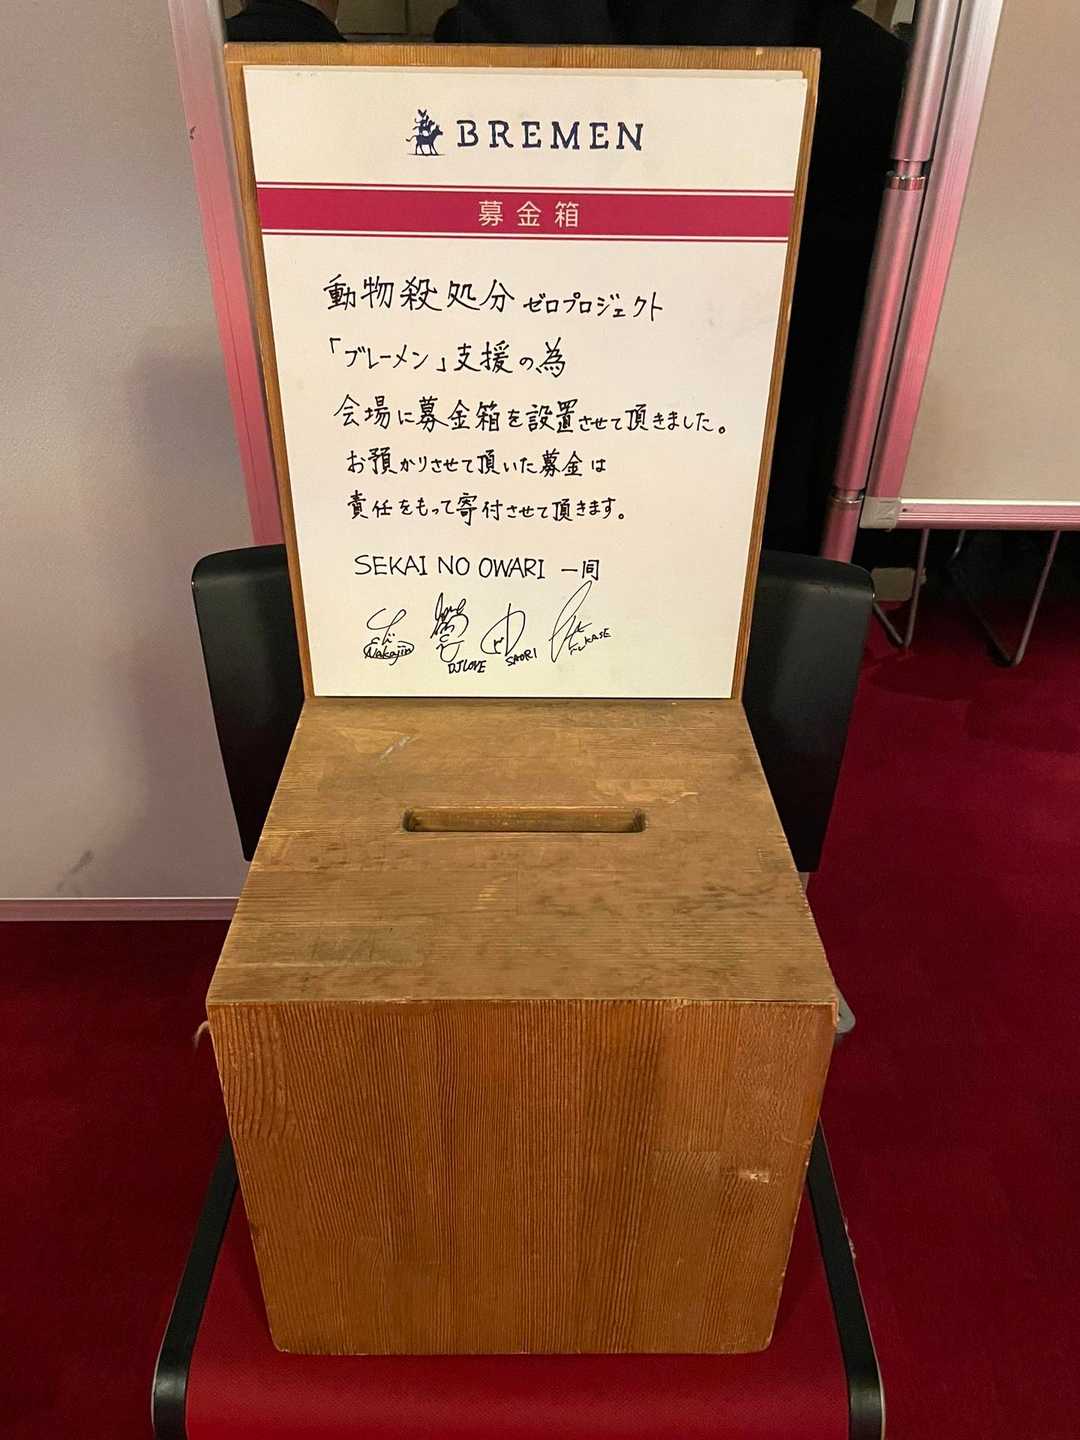 BREMEN
募金箱
動物殺処分ゼロプロジェクト
「ブレーメン」支援の為
会場に募金箱を設置させて頂きました。
お預かりさせて頂いた募金は
責任をもって寄付させて頂きます。
SEKAI NO OWARI 一同
Nakajin
DJ LOVE
SAORI
FUKASE